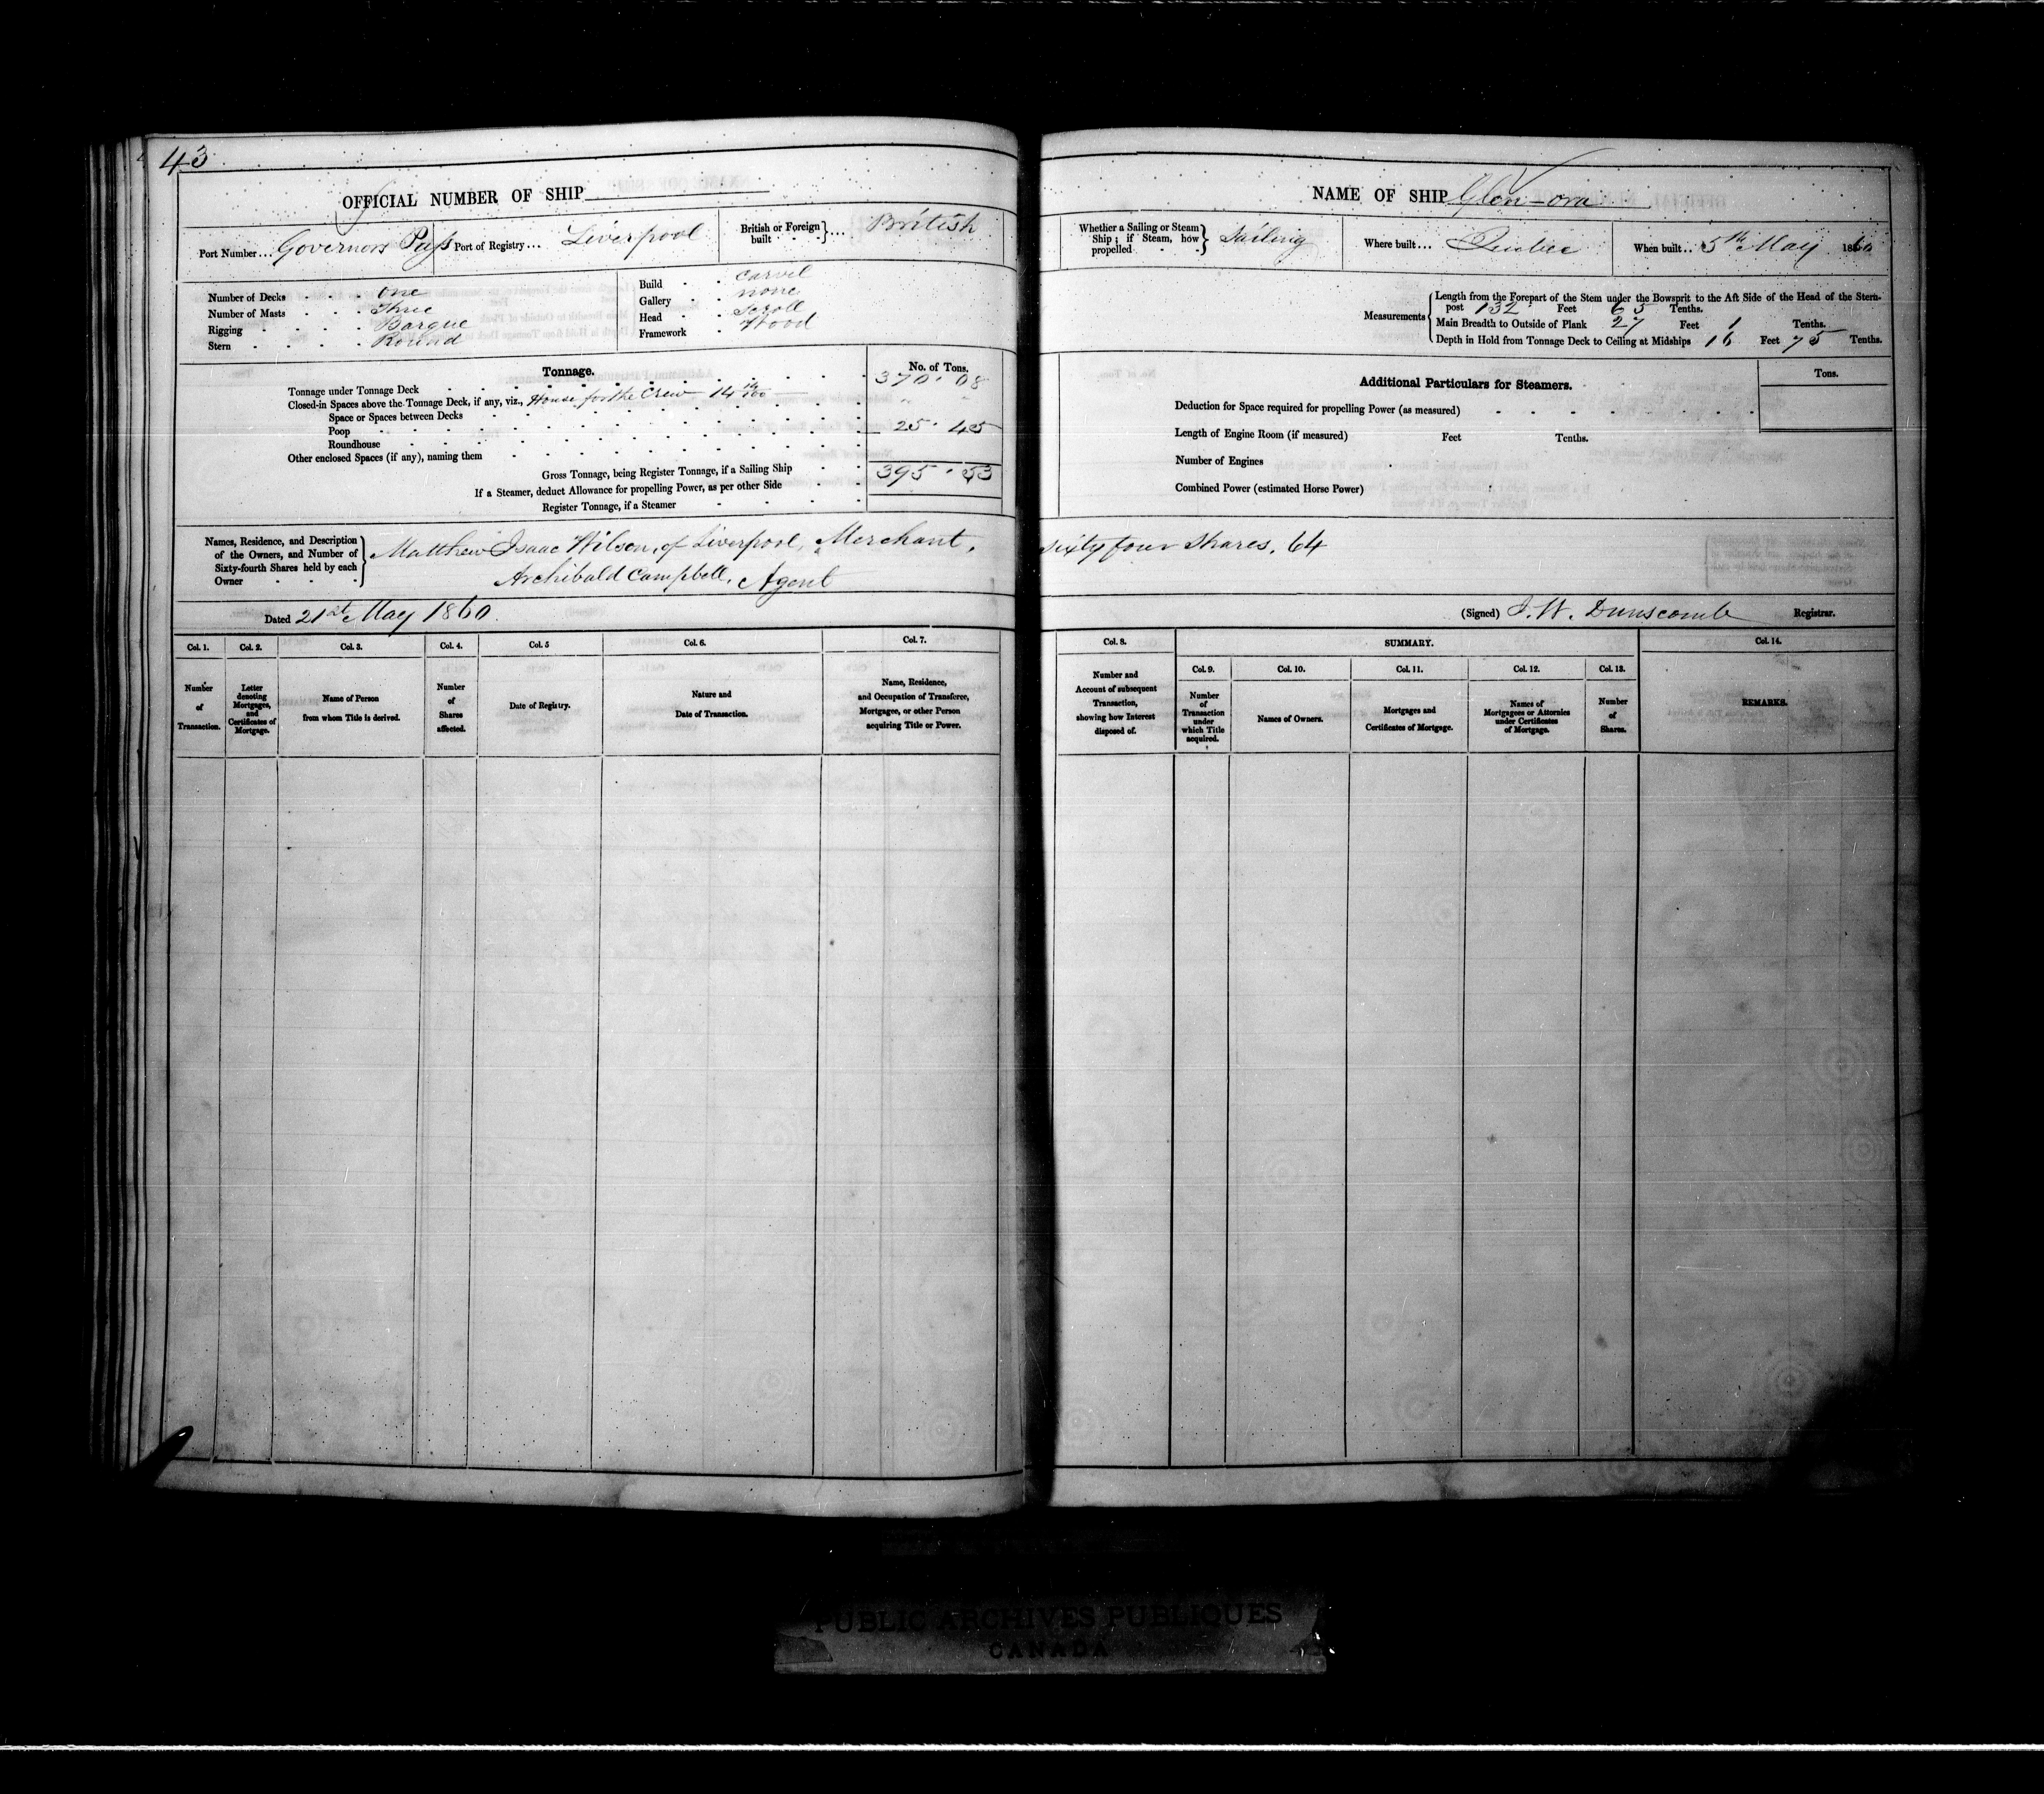 43
OFFICIAL NUMBER OF SHIP
Port Number... Governors Pass Port of Registry... Liverpool British or Foreign built } ... British
Number of Decks . . . One
Number of Masts . . . Three
Rigging . . . . Barque
Stern . . . . Round
Build . . Carvel
Gallery . . none
Head . . Scroll
Framework . Wood
Tonnage.
No. of Tons.
Tonnage under Tonnage Deck 370 . 08
Closed-in Spaces above the Tonnage Deck, if any, viz., House for the Crew 14
Space or Spaces between Decks
Poop 25 . 45
Roundhouse
Other enclosed Spaces (if any), naming them
Gross Tonnage, being Register Tonnage, if a Sailing Ship 395 . 53
If a Steamer, deduct Allowance for propelling Power, as per other Side
Register Tonnage, if a Steamer
Names, Residence, and Description of the Owners, and Number of Sixty-fourth Shares held by each Owner
Matthew Isaac Wilson, of Liverpool, Merchant,
Archibald Campbell, Agent
Dated 21st May 1860.
Col. 1. Col. 2. Col. 3. Col. 4. Col. 5 Col. 6. Col. 7.
Number of Transaction.
Letter denoting Mortgages, and Certificates of Mortgage.
Name of Person from whom Title is derived.
Number of Shares affected.
Date of Registry.
Nature and Date of Transaction.
Name, Residence, and Occupation of Transferee, Mortgagee, or other Person acquiring Title or Power.
NAME OF SHIP Glen-ora
Whether a Sailing or Steam Ship; if Steam, how propelled } Sailing Where built... Quebec When built... 5th May 1860
Measurements
Length from the Forepart of the Stem under the Bowsprit to the Aft Side of the Head of the Stern-
post 132 Feet 65 Tenths.
Main Breadth to Outside of Plank 27 Feet 1 Tenths.
Depth in Hold from Tonnage Deck to Ceiling at Midships 16 Feet 75 Tenths.
Additional Particulars for Steamers.
Tons.
Deduction for Space required for propelling Power (as measured)
Length of Engine Room (if measured) Feet Tenths.
Number of Engines
Combined Power (estimated Horse Power)
Sixty four Shares, 64
(Signed) J. W. Dunscomb Registrar.
Col. 8. SUMMARY. Col. 14.
Col. 9. Col. 10. Col. 11. Col. 12. Col. 13.
Number and Account of subsequent Transaction, showing how Interest disposed of.
Number of Transaction under which Title acquired.
Names of Owners.
Mortgages and Certificates of Mortgage.
Names of Mortgagees or Attornies under Certificates of Mortgage.
Number of Shares.
REMARKS.
PUBLIC ARCHIVES PUBLIQUES
CANADA